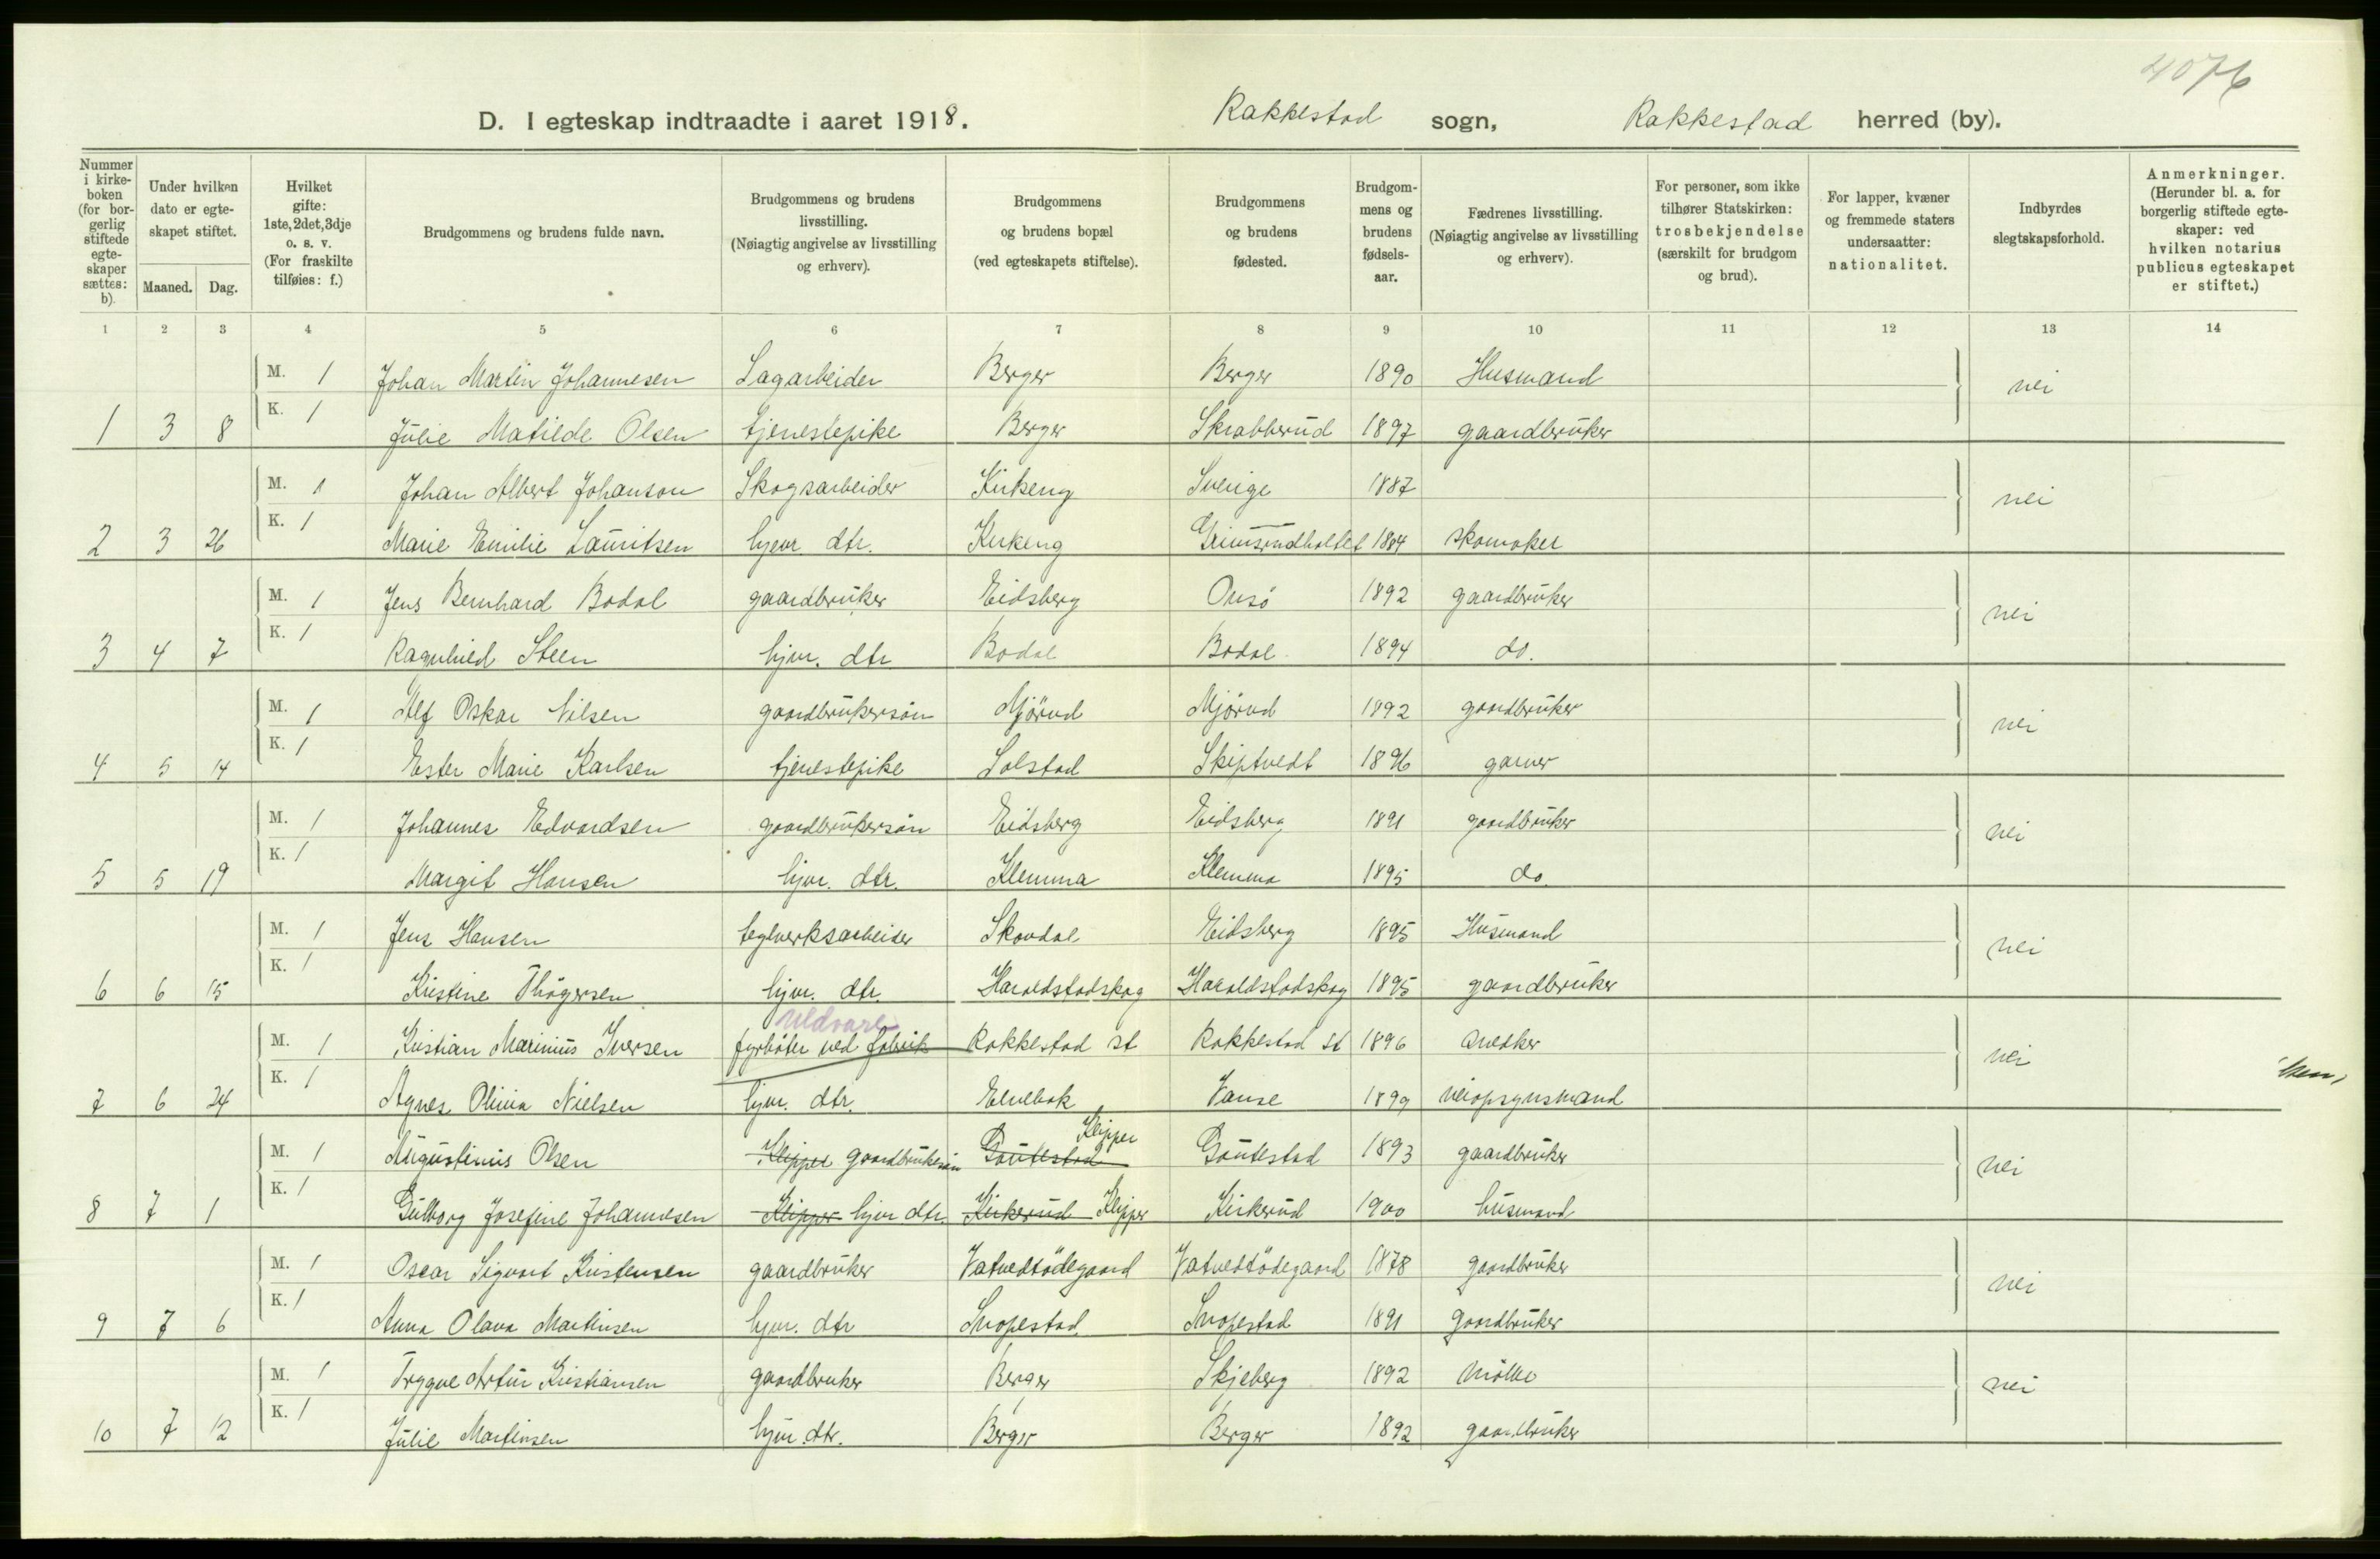 4076
D. I egteskap indtraadte i aaret 1918. Rakkestad sogn, Rakkestad herred (by).
Nummer i kirkeboken (for borgerlig stiftede egteskaper sættes: b).
Under hvilken dato er egteskapet stiftet.
Maaned. Dag.
Hvilket gifte: 1ste, 2det, 3dje o. s. v. (For fraskilte tilføies: f.)
Brudgommens og brudens fulde navn.
Brudgommens og brudens livsstilling. (Nøiagtig angivelse av livsstilling og erhverv).
Brudgommens og brudens bopæl (ved egteskapets stiftelse).
Brudgommens og brudens fødested.
Brudgommens og brudens fødselsaar.
Fædrenes livsstilling. (Nøiagtig angivelse av livsstilling og erhverv).
For personer, som ikke tilhører Statskirken: trosbekjendelse (særskilt for brudgom og brud).
For lapper, kvæner og fremmede staters undersaatter: nationalitet.
Indbyrdes slegtskapsforhold.
Anmerkninger. (Herunder bl. a. for borgerlig stiftede egteskaper: ved hvilken notarius publicus egteskapet er stiftet.)
1 2 3 4 5 6 7 8 9 10 11 12 13 14
M. 1 Johan Martin Johannesen Sagarbeider Berger Berger 1890 Husmand nei
1 3 8 K. 1 Julie Matilde Olsen tjenestepike Berger Skrabberud 1897 gaardbruker
M. 1 Johan Albert Johanson Skogsarbeider Kirkeng Sverige 1887 nei
2 3 26 K. 1 Marie Emilie Lauritsen hjem. dtr. Kirkeng 1884 skomaker
M. 1 Jens Bernhard Bodal gaardbruker Eidsberg Onsö 1892 gaardbruker nei
3 4 7 K. 1 Ragnhild Steen hjm. dtr Bodal Bodal 1894 do.
M. 1 Alf Oskar Nilsen gaardbrukersön Mjörud Mjörud 1892 gaardbruker nei
4 5 14 K. 1 Ester Marie Karlsen tjenestepike Solstad Skiptvedt 1896 garver
M. 1 Johannes Edvardsen gaardbrukersön Eidsberg Eidsberg 1891 gaardbruker nei
5 5 19 K. 1 Margit Hansen hjm. dtr. Klemma Klemma 1895 do.
M. 1 Jens Hansen teglverksarbeider Skovdal Eidsberg 1895 Husmand nei
6 6 15 K. 1 Kristine Thögersen hjm. dtr. Haraldstadskog Haraldstadskog 1895 gaardbruker
uldvare
M. 1 Kristian Marinius Iversen fyrböter ved fabrik Rakkestad st Rakkestad st 1896 snedker nei
7 6 24 K. 1 Agnes Olivia Nielsen hjm. dtr. Elvebak Vanse 1899 veiopsynsmand
M. 1 Augustinius Olsen Klipper gaardbrukersön Gautestad Klipper Gautestad 1893 gaardbruker nei
8 7 1 K. 1 Gulborg Josefine Johannesen Klipper hjm dtr. Kirkerud Klipper Kirkerud 1900 husmand
M. 1 Oscar Sigvart Kristensen gaardbruker Vatvedtödegaard Vatvedtödegaard 1878 gaardbruker nei
9 7 6 K. 1 Anna Olava Martinsen hjm. dtr Snopestad Snopestad 1891 gaardbruker
M. 1 Trygve Artur Kristiansen gaardbruker Berger Skjeberg 1892 nei
10 7 12 K. 1 Julie Martinsen hjm. dtr. Berger Berger 1892 gaardbruker